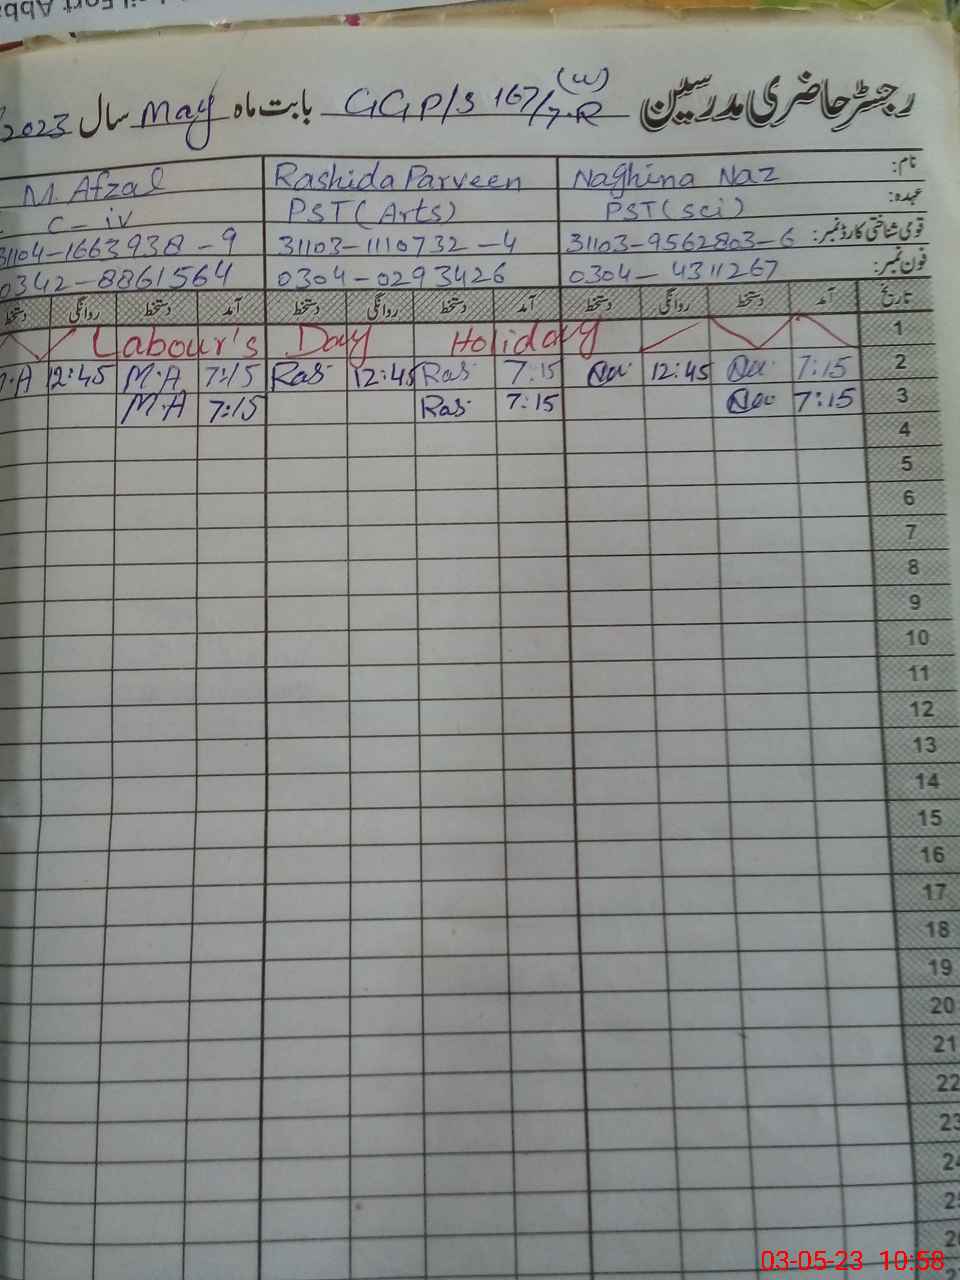 رجسٹر حاضری مدرسین GGP/S 167/7.R (W) بابت ماہ May سال 2023
نام: Naghina Naz Rashida Parveen M. Afzal
عہدہ: PST(Sci) PST(Arts) C-iv
قومی شناختی کارڈ نمبر: 31103-9562803-6 31103-1110732-4 31104-1663938-9
فون نمبر: 0304-4311267 0304-0293426 0342-8861564
تاریخ آمد دستخط روانگی دستخط آمد دستخط روانگی دستخط آمد دستخط روانگی دستخط
1 Labour's Day Holiday
2 7:15 12:45 7:15 Ras 12:45 Ras 7:15 M.A 12:45 M.A
3 7:15 7:15 Ras 7:15 M.A
4
5
6
7
8
9
10
11
12
13
14
15
16
17
18
19
20
21
22
23
24
25
26
03-05-23 10:58